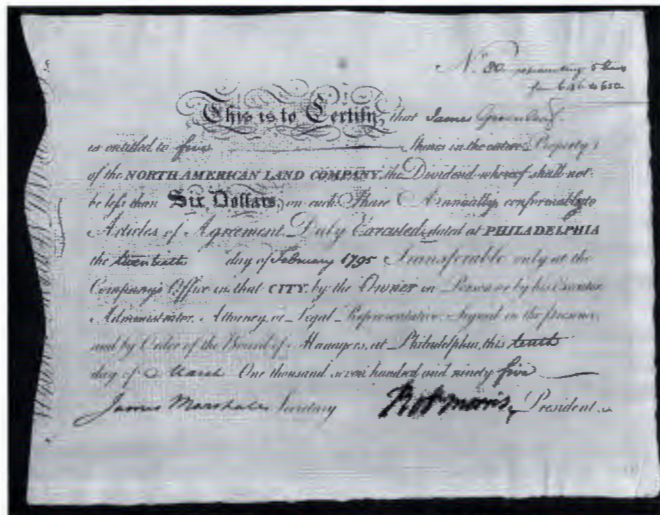 No. 80 representing 5 Shares
from 646 to 650
This is to Certify that James Greenleaf
is entitled to five Shares in the entire Property
of the NORTH AMERICAN LAND COMPANY, the Dividend whereof shall not
be less than Six Dollars, on each Share Annually, conformably to
Articles of Agreement Duly Executed; dated at PHILADELPHIA
the twentieth day of February 1795 Transferable only at the
Company's Office in that CITY, by the Owner in Person or by his Executor
Administrator, Attorney or Legal Representative. Signed in the presence,
and by Order of the Board of Managers, at Philadelphia, this tenth
day of March One thousand seven hundred and ninety five
James Marshall Secretary Rob Morris President